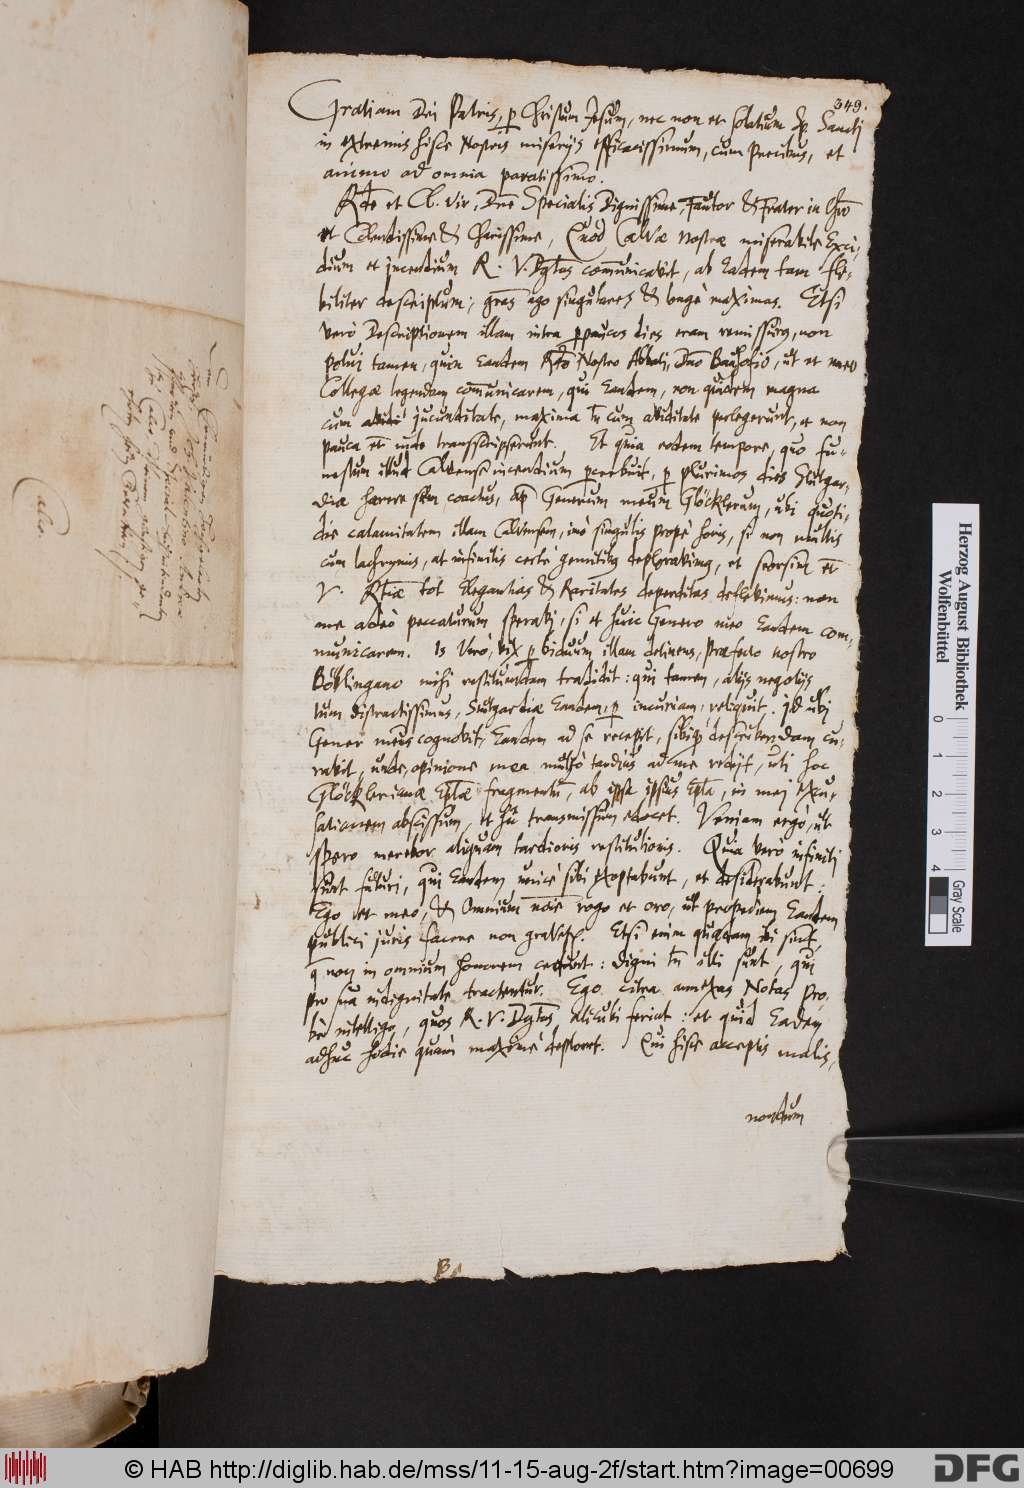 349.
Gratiam Dei Patris, p Christum Jesum, nec non et solatium Sp. Sancti
in extremis hisce Nostris miserijs efficacissimum, cum precibus, et
animo ad omnia paratissimo.
Rde et Cl. vir, Dne Specialis Dignissime, Fautor & Frater in Chro
et Colendissime & Charissime, Quod Calvae nostrae miserabile Exci-
dium et incendium R. V. Dgtas communicavit, ab Eadem tam fle-
biliter descriptum; gras ago singulares & longè maximas. Etsi
verò Descriptionem illam intra ppaucos dies eram remissurus, non
potui tamen, quin Eandem Rdo Nostro Abbati, Dno ut et meo
Collegae legendam communicarem, qui Eandem, non quidem magna
cum jucunditate, maxima tn cum aviditate perlegerunt, et non
pauca et inde transscripserunt. Et quia eodem tempore, quo fu-
nestum illud Calvense incendium percrebuit, p plurimos dies Stutgar-
diae haerere sum coactus, ap Generum meum Glöcklerum, ubi quoti-
die calamitatem illam Calvensem, imò singulis propè horis, si non multis
cum lachrymis, at infinitis certè gemitibus deploravimus, et seorsim et
V. Rtiae tot Elegantias & Raritates deperditas deflevimus: non
me adeò peccaturum speravi, si et huic Genero meo Eandem com-
municarem. Is verò, vix p biduum illam detinens, Praefecto nostro
Böblingano mihi restituendam tradidit: qui tamen, alijs negotijs
tum distractissimus, Stutgardiae Eandem, p incuriam, reliquit. Id ubi
Gener meus cognovit, Eandem ad se recepit, sibiq describendam cu-
ravit, unde, opinione mea multò tardius ad me redijt, uti hoc
Glöcklerianae Eplae fragmentum, ab ipsa ipsius Epla, in mej excu-
sationem abscissum, et hûc transmissum edocet. Veniam ergò, ut
spero merebor aliquam tardioris restitutionis. Quia verò infiniti
sunt futuri, qui Eandem unicè sibi exoptabunt, et desiderabunt:
Ego et meo, & Omnium nomine rogo et oro, ut propediem Eandem
publici juris facere non gravetur. Etsi enim quaedam ibi sint,
q non in omnium honorem cedunt: digni tn illi sunt, qui
pro sua indignitate tractentur. Ego citra annexas Notas pro-
bè intelligo, quos R. V. Dgtas alicubi feriat: et quid Eadem
adhuc hodie quàm maximè defloret. Qui hisce acceptis malis,
nondum
B
Calw.
Herzog August Bibliothek
Wolfenbüttel
0 1 2 3 4
Gray Scale
© HAB http://diglib.hab.de/mss/11-15-aug-2f/start.htm?image=00699
DFG